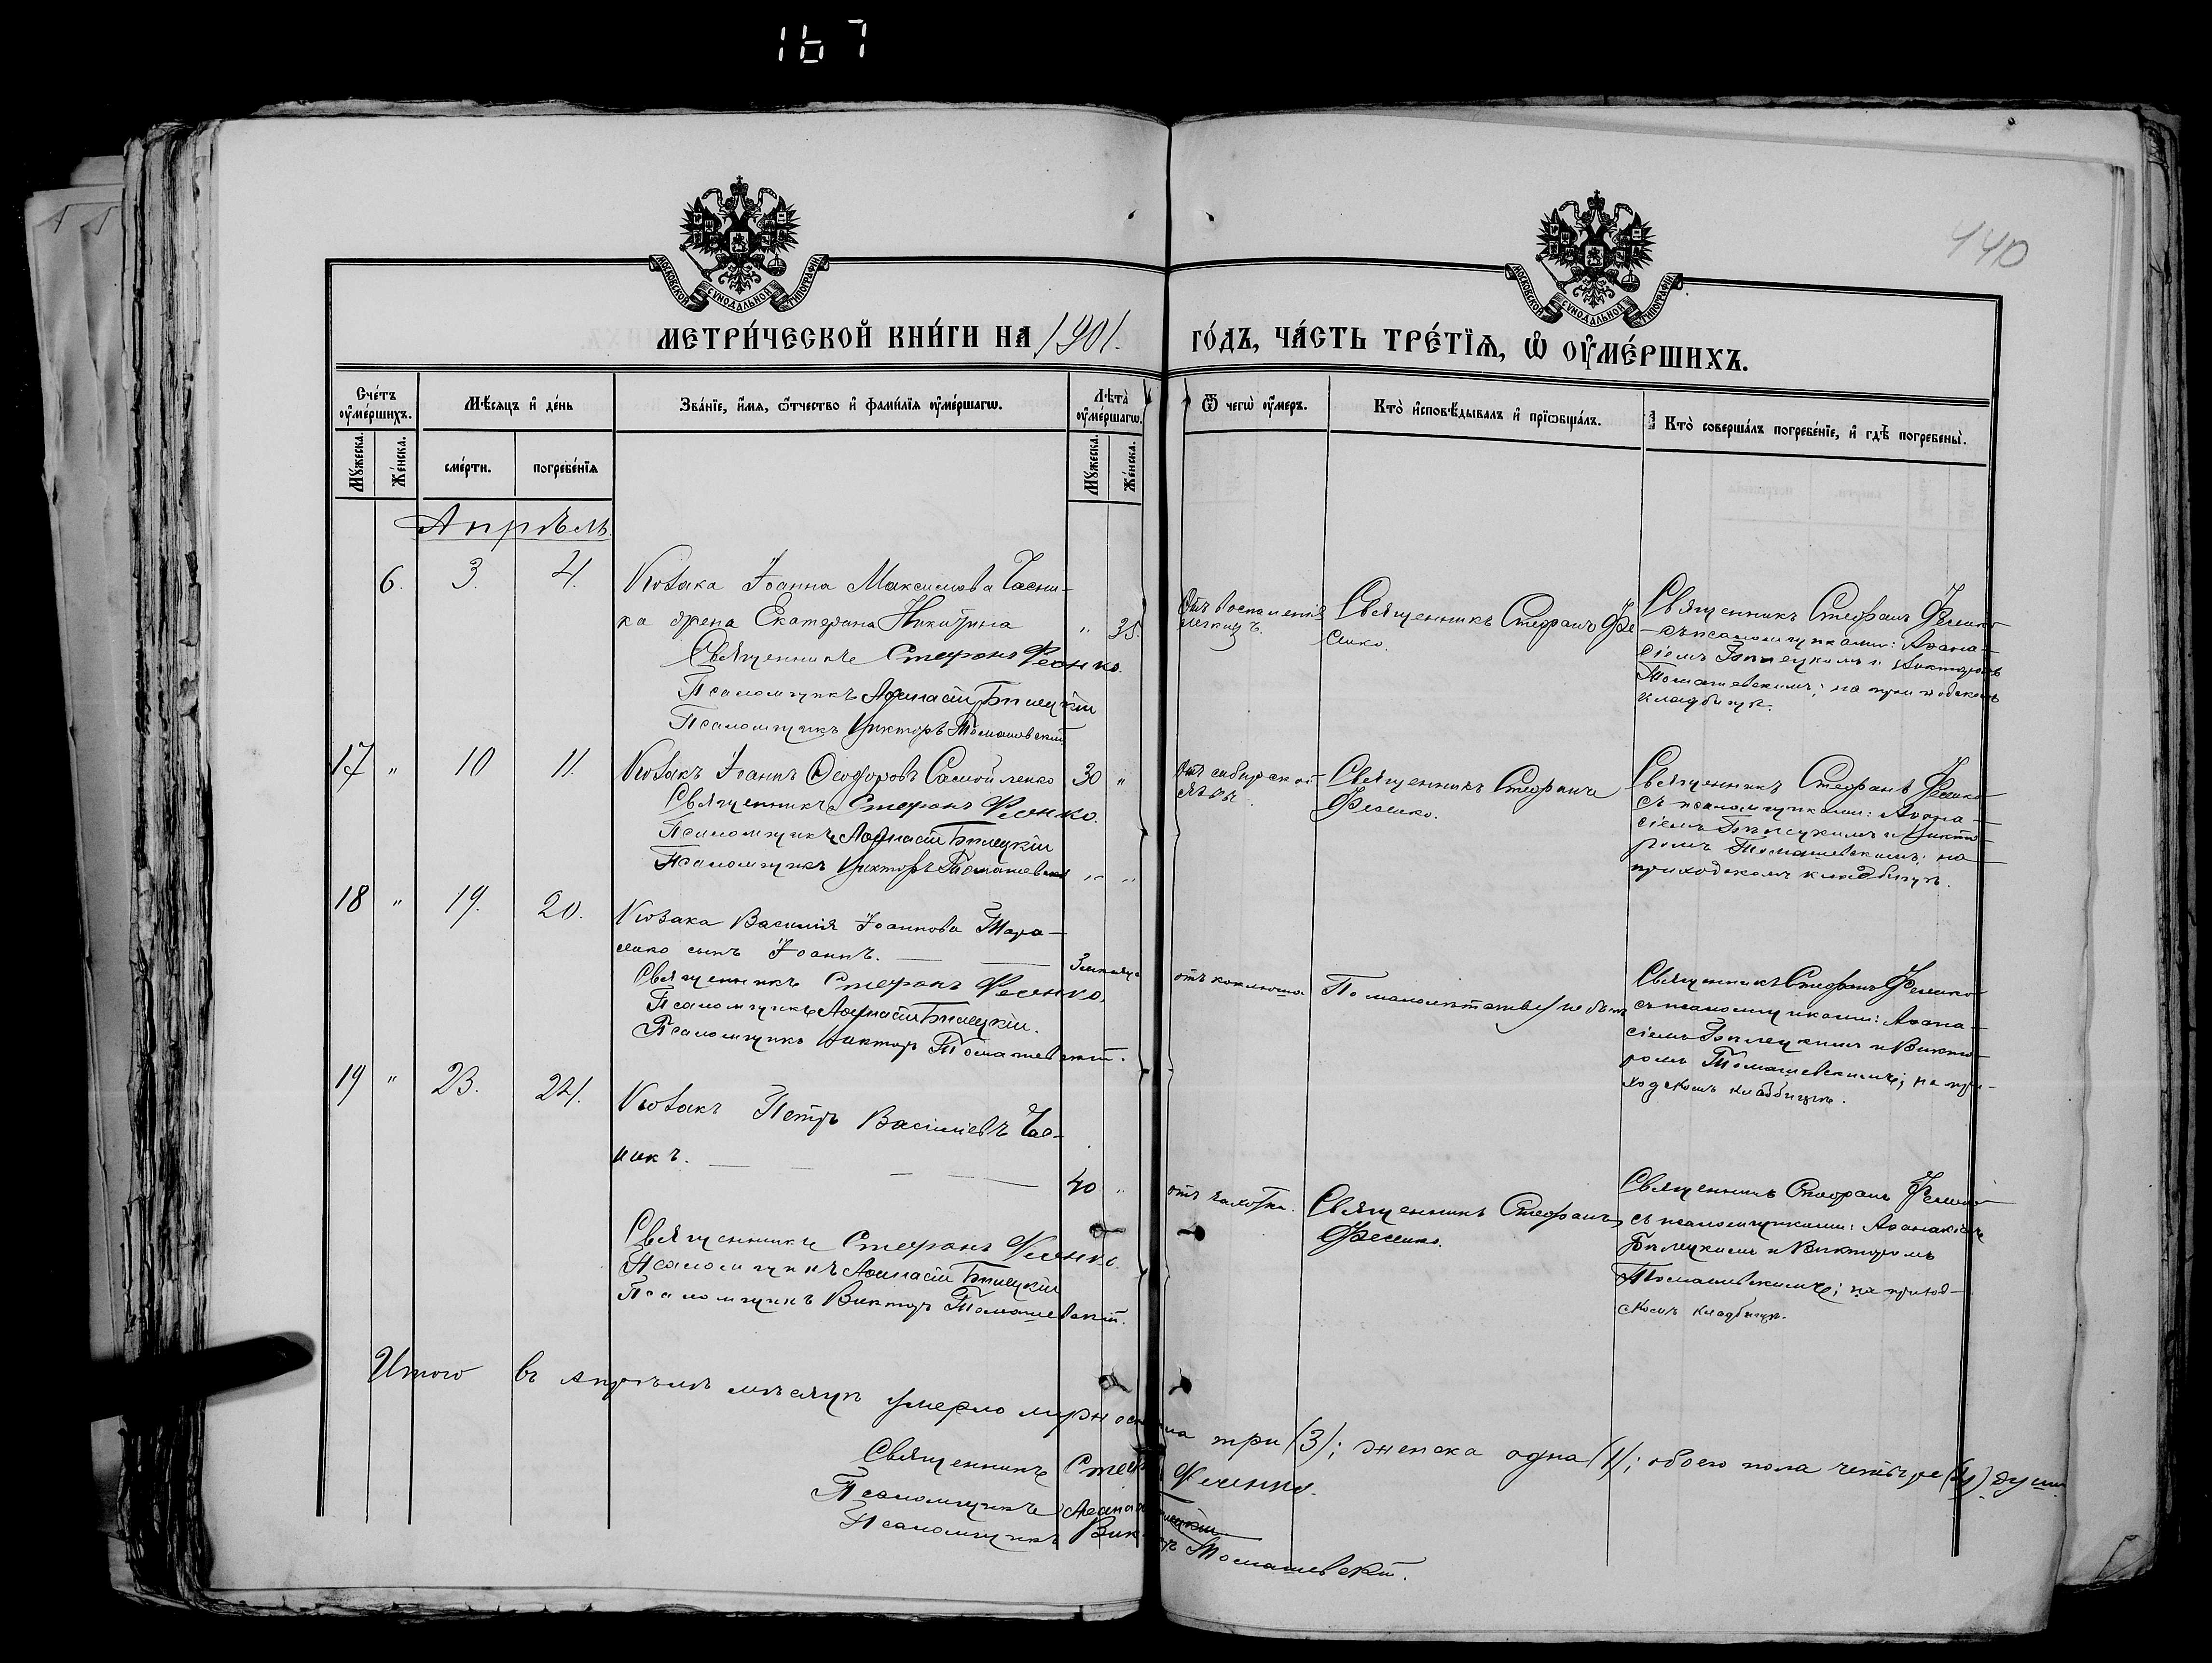 167
440
МОСКОВСКОЙ СУНОДАЛЬНОЙ ТИПОГРАФІИ
МОСКОВСКОЙ СУНОДАЛЬНОЙ ТИПОГРАФІИ
МЕТРИ́ЧЕСКОЙ КНИ́ГИ НА 1901.
ГО́ДЪ, ЧА́СТЬ ТРЕ́ТЇѦ, Ѡ҆ ОУ҆МЕ́РШИХЪ.
Сче́тъ оу҆ме́ршихъ.
Мꙋжеска.
Же́нска.
Мѣ́сяцъ и҆ де́нь
сме́рти.
погребе́нїѧ
Зва́нїе, и҆́мѧ, ѻ҆́тчество и҆ фами́лїѧ оу҆ме́ршагѡ.
Лѣта̀ оу҆ме́ршагѡ.
Мꙋжеска.
Же́нска.
Ѿ чегѡ̀ оу҆́меръ.
Кто̀ и҆сповѣ́дывалъ и҆ прїѡбща́лъ.
Кто̀ соверша́лъ погребе́нїе, и҆ гдѣ̀ погребены̀.
Апрѣль.
6. 3. 4. Козака Іоанна Максимова Часни-
ка жена Екатерина Никитина " 35.
Священникъ Стефанъ Фесенко.
Псаломщикъ Афанасій Билецкій
Псаломщикъ Викторъ Томашевскій
Отъ воспаленія
легкихъ.
Священникъ Стефанъ Фе
сенко.
Священникъ Стефанъ Фесенко
съ псаломщиками: Афана-
сіемъ Билецкимъ и Викторомъ
Томашевскимъ; на приходскомъ
кладбищѣ.
17 " 10 11. Козакъ Іоаннъ Феодоровъ Самойленко 30 "
Священникъ Стефанъ Фесенко.
Псаломщикъ Афанасій Билецкій
Псаломщикъ Викторъ Томашевскій
Отъ сибирской
язвы.
Священникъ Стефанъ
Фесенко.
Священникъ Стефанъ Фесенко
съ псаломщиками: Афана-
сіемъ Билецкимъ и Викто-
ромъ Томашевскимъ; на
приходскомъ кладбищѣ.
18 " 19. 20. Козака Василія Іоаннова Тара-
сенко сынъ Іоаннъ. 3 мѣсяца
Священникъ Стефанъ Фесенко
Псаломщикъ Афанасій Билецкій.
Псаломщикъ Викторъ Томашевскій.
отъ коклюша
По малолѣтству не былъ
Священникъ Стефанъ Фесенко
съ псаломщиками: Афана-
сіемъ Билецкимъ и Викто-
ромъ Томашевскимъ; на при-
ходскомъ кладбищѣ.
19 " 23. 24. Козакъ Петръ Василіевъ Час-
никъ. 40 "
Священникъ Стефанъ Фесенко.
Псаломщикъ Афанасій Билецкій
Псаломщикъ Викторъ Томашевскій.
отъ чахотки.
Священникъ Стефанъ
Фесенко.
Священникъ Стефанъ Фесенко
съ псаломщиками: Афанасіемъ
Билецкимъ и Викторомъ
Томашевскимъ; на приход-
скомъ кладбищѣ.
Итого въ апрѣлѣ мѣсяцѣ умерло мужеска пола три (3); женска одна (1); обоего пола четыре (4) души.
Священникъ Стефанъ Фесенко.
Псаломщикъ Афанасій Билецкій
Псаломщикъ Викторъ Томашевскій.